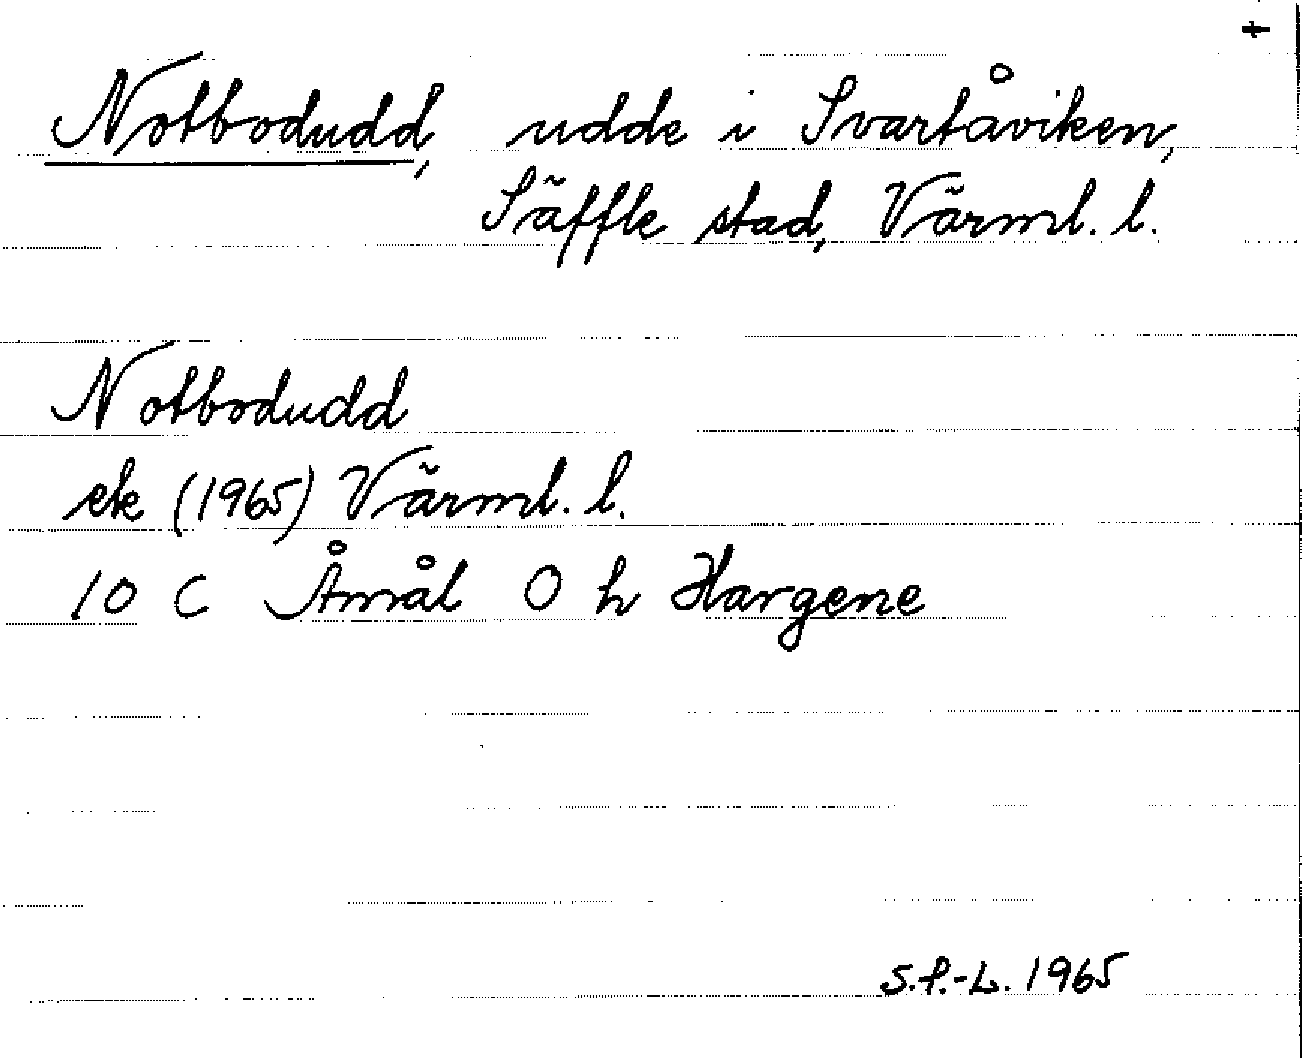 Notbodudd, udde i Svartåviken,
Säffle stad, Värml. l.
Notbodudd
ek (1965) Värml. l.
10 C Åmål O h Hargene
S.P.-L. 1965